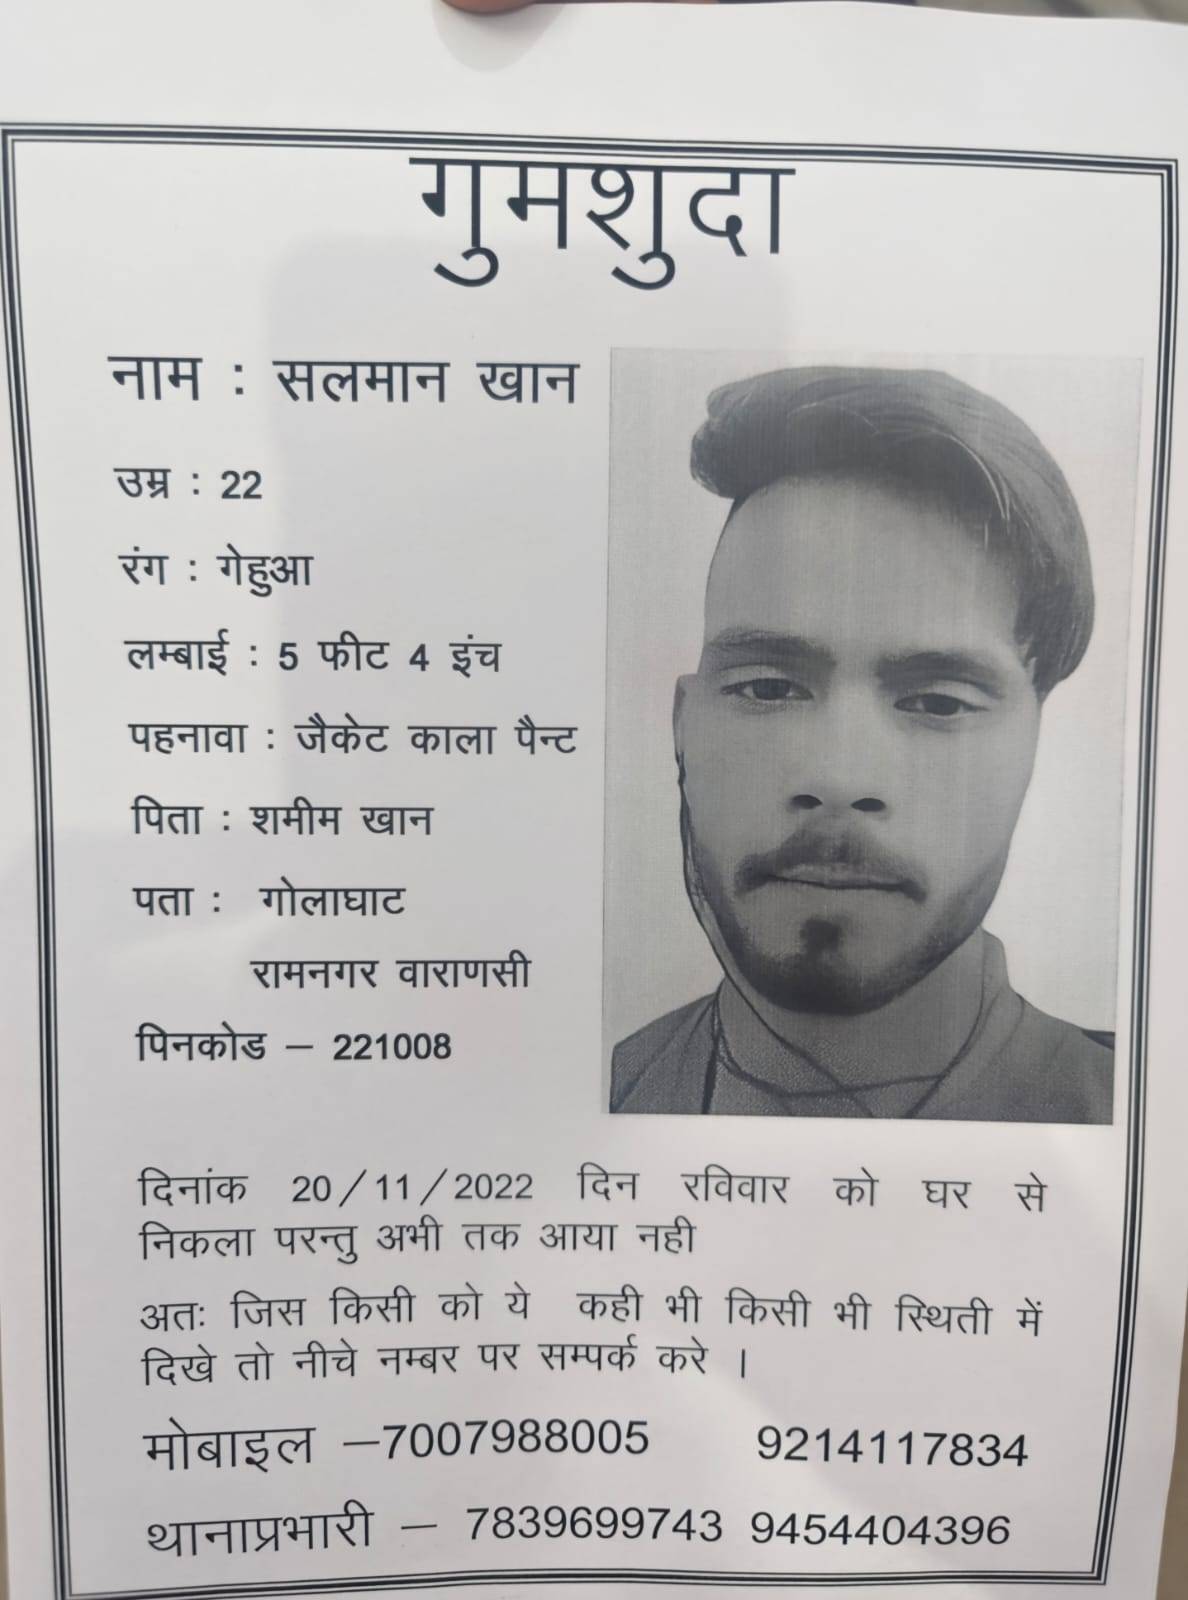 गुमशुदा
नाम : सलमान खान
उम्र : 22
रंग : गेहुआ
लम्बाई : 5 फीट 4 इंच
पहनावा : जैकेट काला पैन्ट
पिता : शमीम खान
पता : गोलाघाट
रामनगर वाराणसी
पिनकोड – 221008
दिनांक 20/11/2022 दिन रविवार को घर से
निकला परन्तु अभी तक आया नही
अतः जिस किसी को ये कही भी किसी भी स्थिती में
दिखे तो नीचे नम्बर पर सम्पर्क करे ।
मोबाइल –7007988005 9214117834
थानाप्रभारी – 7839699743 9454404396